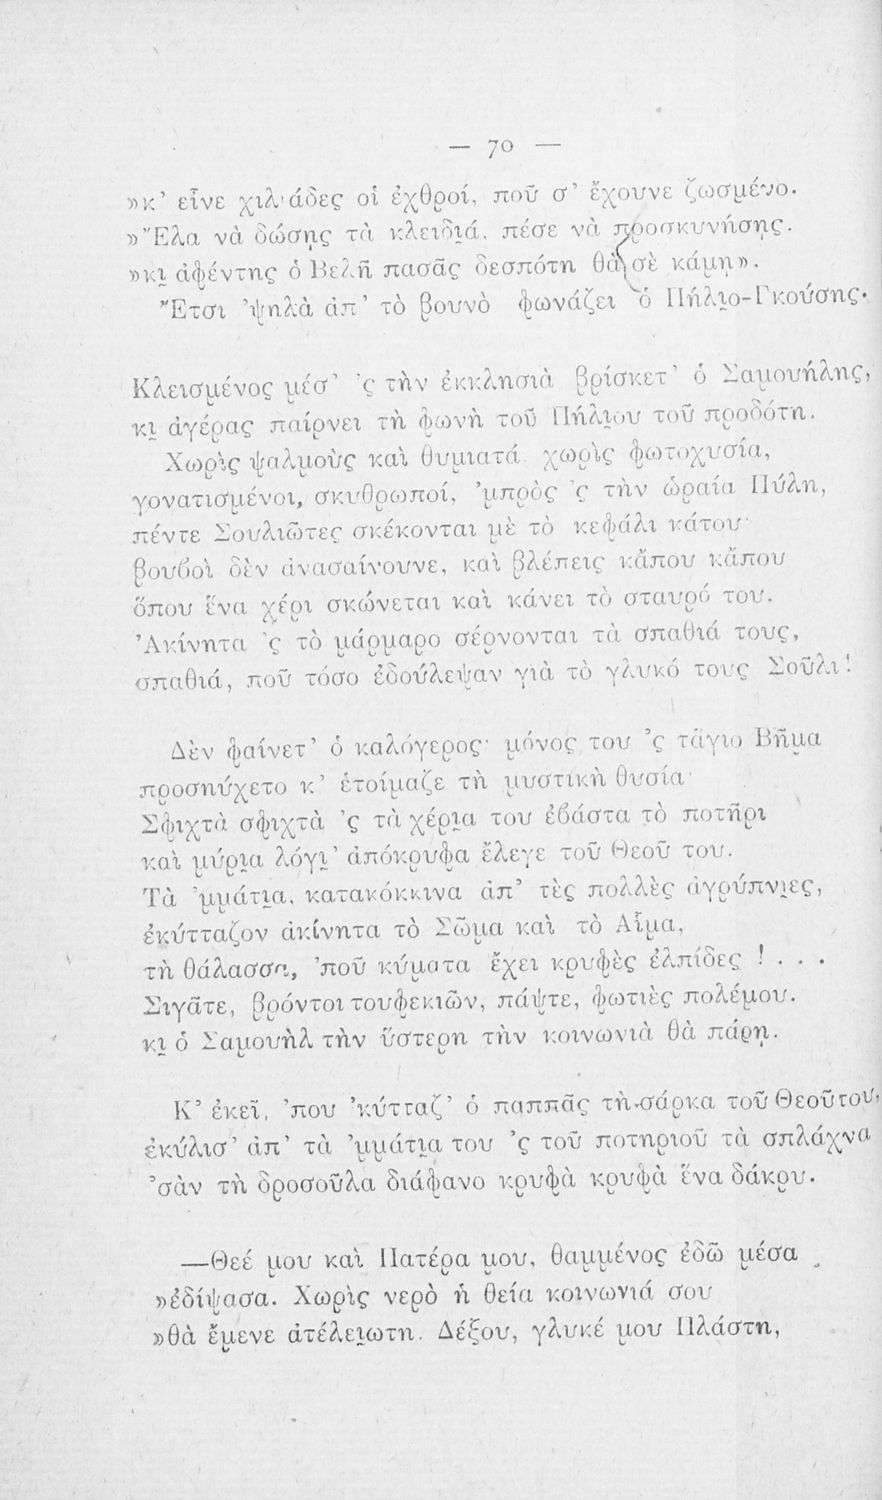 — 70 —
»κ’ εἶνε χιλιάδες οἱ ἐχθροί, ποῦ σ’ ἔχουνε ζωσμένο.
»Ἔλα νὰ δώσῃς τὰ κλειδι̯ά, πέσε νὰ προσκυνήσῃς.
»κι̯ ἀφέντης ὁ Βελῆ πασᾶς δεσπότη θὰ σὲ κάμῃ».
Ἔτσι ’ψηλὰ ἀπ’ τὸ βουνὸ φωνάζει ὁ Πήλι̯ο-Γκούσης.
Κλεισμένος μέσ’ ’ς τὴν ἐκκλησιὰ βρίσκετ’ ὁ Σαμουήλης,
κι̯ ἀγέρας παίρνει τὴ φωνὴ τοῦ Πήλι̯ου τοῦ προδότη.
Χωρὶς ψαλμοὺς καὶ θυμιατά χωρὶς φωτοχυσία,
γονατισμένοι, σκυθρωποί, ’μπρὸς ’ς τὴν ὡραία Πύλη,
πέντε Σουλιῶτες σκέκονται μὲ τὸ κεφάλι κάτου·
βουβοὶ δὲν ἀνασαίνουνε, καὶ βλέπεις κἄπου κἄπου
ὅπου ἕνα χέρι σκώνεται καὶ κάνει τὸ σταυρό του.
Ἀκίνητα ’ς τὸ μάρμαρο σέρνονται τὰ σπαθιά τους,
σπαθιά, ποῦ τόσο ἐδούλεψαν γιὰ τὸ γλυκό τους Σοῦλι!
Δὲν φαίνετ’ ὁ καλόγερος· μόνος του ’ς τἄγιο Βῆμα
προσηύχετο κ’ ἑτοίμαζε τὴ μυστικὴ θυσία·
Σφιχτὰ σφιχτὰ ’ς τὰ χέρι̯α του ἐβάστα τὸ ποτῆρι
καὶ μύρι̯α λόγι̯’ ἀπόκρυφα ἔλεγε τοῦ Θεοῦ του.
Τὰ ’μμάτι̯α, κατακόκκινα ἀπ’ τὲς πολλὲς ἀγρύπνι̯ες,
ἐκύτταζον ἀκίνητα τὸ Σῶμα καὶ τὸ Αἷμα,
τὴ θάλασσα, ’ποῦ κύματα ἔχει κρυφὲς ἐλπίδες ! . . .
Σιγᾶτε, βρόντοι τουφεκιῶν, πάψτε, φωτιὲς πολέμου.
κι̯ ὁ Σαμουὴλ τὴν ὕστερη τὴν κοινωνιὰ θὰ πάρῃ.
Κ’ ἐκεῖ, ’που ’κύτταζ’ ὁ παππᾶς τὴ σάρκα τοῦ Θεοῦ του,
ἐκύλισ’ ἀπ’ τὰ ’μμάτι̯α του ’ς τοῦ ποτηριοῦ τὰ σπλάχνα
’σὰν τὴ δροσοῦλα διάφανο κρυφὰ κρυφὰ ἕνα δάκρυ.
—Θεέ μου καὶ Πατέρα μου, θαμμένος ἐδῶ μέσα
»ἐδίψασα. Χωρὶς νερὸ ἡ θεία κοινωνιά σου
»θὰ ἔμενε ἀτέλει̯ωτη. Δέξου, γλυκέ μου Πλάστη,